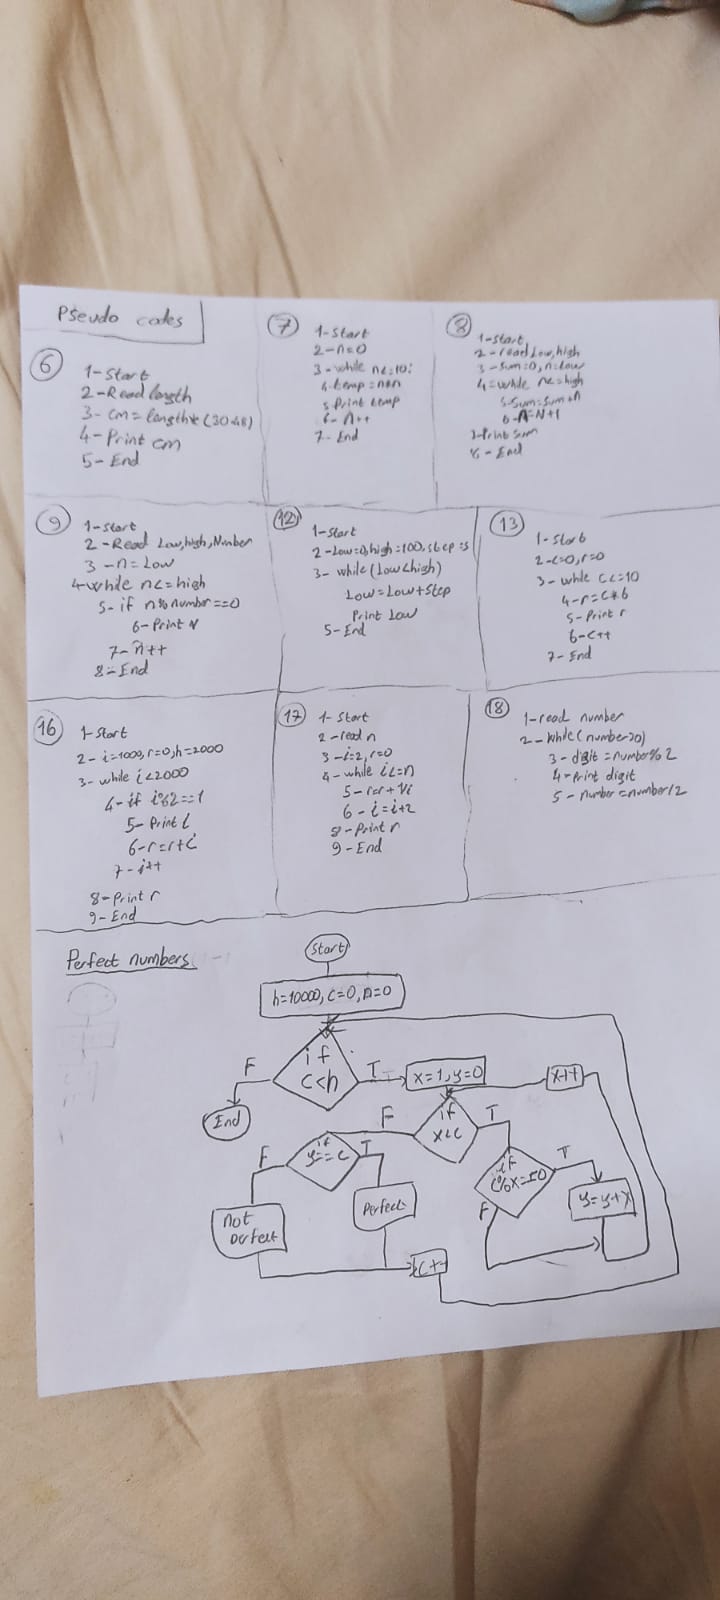 Pseudo codes
6
1-Start
2-Read length
3- cm = length*(30.48)
4- Print cm
5- End
7
1-Start
2-n=0
3-while n<=10:
4-temp=n*n
5-Print temp
6-n++
7-End
8
1-Start
2-read Low,high
3-Sum=0, n=Low
4-while n<=high
5-Sum=Sum+n
6-n=N+1
7-Print Sum
8-End
9
1-Start
2-Read Low,high,Number
3-n=Low
4-while n<=high
5-if n%number==0
6-Print N
7-n++
8-End
12
1-Start
2-Low=0,high=100,step=5
3-while(Low<high)
Low=Low+Step
Print Low
5-End
13
1-Start
2-c=0,r=0
3-while c<=10
4-r=c*6
5-Print r
6-c++
7-End
16
1-Start
2-i=1000,r=0,h=2000
3-while i<2000
4-if i%2==1
5-Print i
6-r=r+i
7-i++
8-Print r
9-End
17
1-Start
2-read n
3-i=2,r=0
4-while i<=n
5-r=r+1/i
6-i=i+2
8-Print r
9-End
18
1-read number
2-while(number>0)
3-digit=number%2
4-Print digit
5-number=number/2
Perfect numbers
Start
h=10000, c=0, n=0
if
c<h
F
T
End
x=1,y=0
x++
if
x<c
F
T
if
y==c
F
T
if
c%x==0
T
F
y=y+x
not
perfect
Perfect
c++